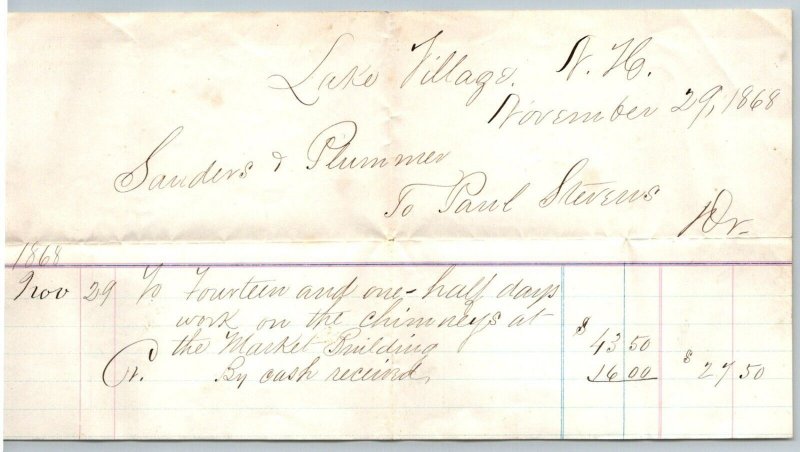 Lake Village, N. H.
November 29, 1868
Sanders & Plummer
To Paul Stevens
Dr.
1868
Nov 29 To Fourteen and one-half days
work on the chimneys at
the Market Building $ 43 50
Cr. By cash received, 16 00 $ 27 50